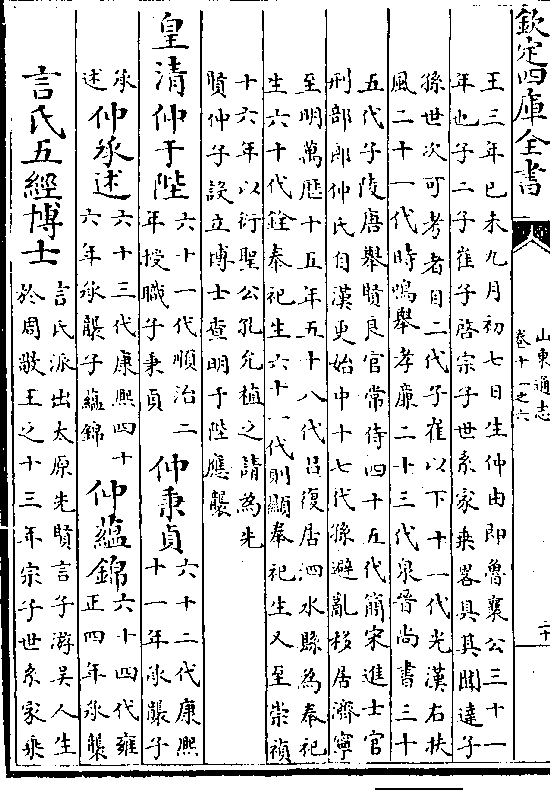 欽定四庫全書
山東通志
卷十一之六
二十
王三年已未九月初七日生仲由即魯襄公三十一
年也子二子崔子啓宗子世系家乘畧具其聞達子
孫世次可考者自二代子崔以下十一代光漢右扶
風二十一代時鳴舉孝廉二十三代泉晉尚書三十
五代子陵唐舉賢良官常侍四十五代簡宋進士官
刑部郎仲氏自漢更始中十七代孫避亂移居濟寧
至明萬歷十五年五十八代吕復居泗水縣為奉祀
生六十代銓奉祀生六十一代則顯奉祀生又至崇禎
十六年以衍聖公孔允植之請為先
賢仲子設立博士查明于陛應襲
皇清仲于陛
六十一代順治二
年授職子秉貞
仲秉貞
六十二代康熙
十一年承襲子
承
述
仲承述
六十三代康熙四十
六年承襲子藴錦
仲藴錦
六十四代雍
正四年承襲
言氏五經博士
言氏派出太原先賢言子游吳人生
於周敬王之十三年宗子世系家乘